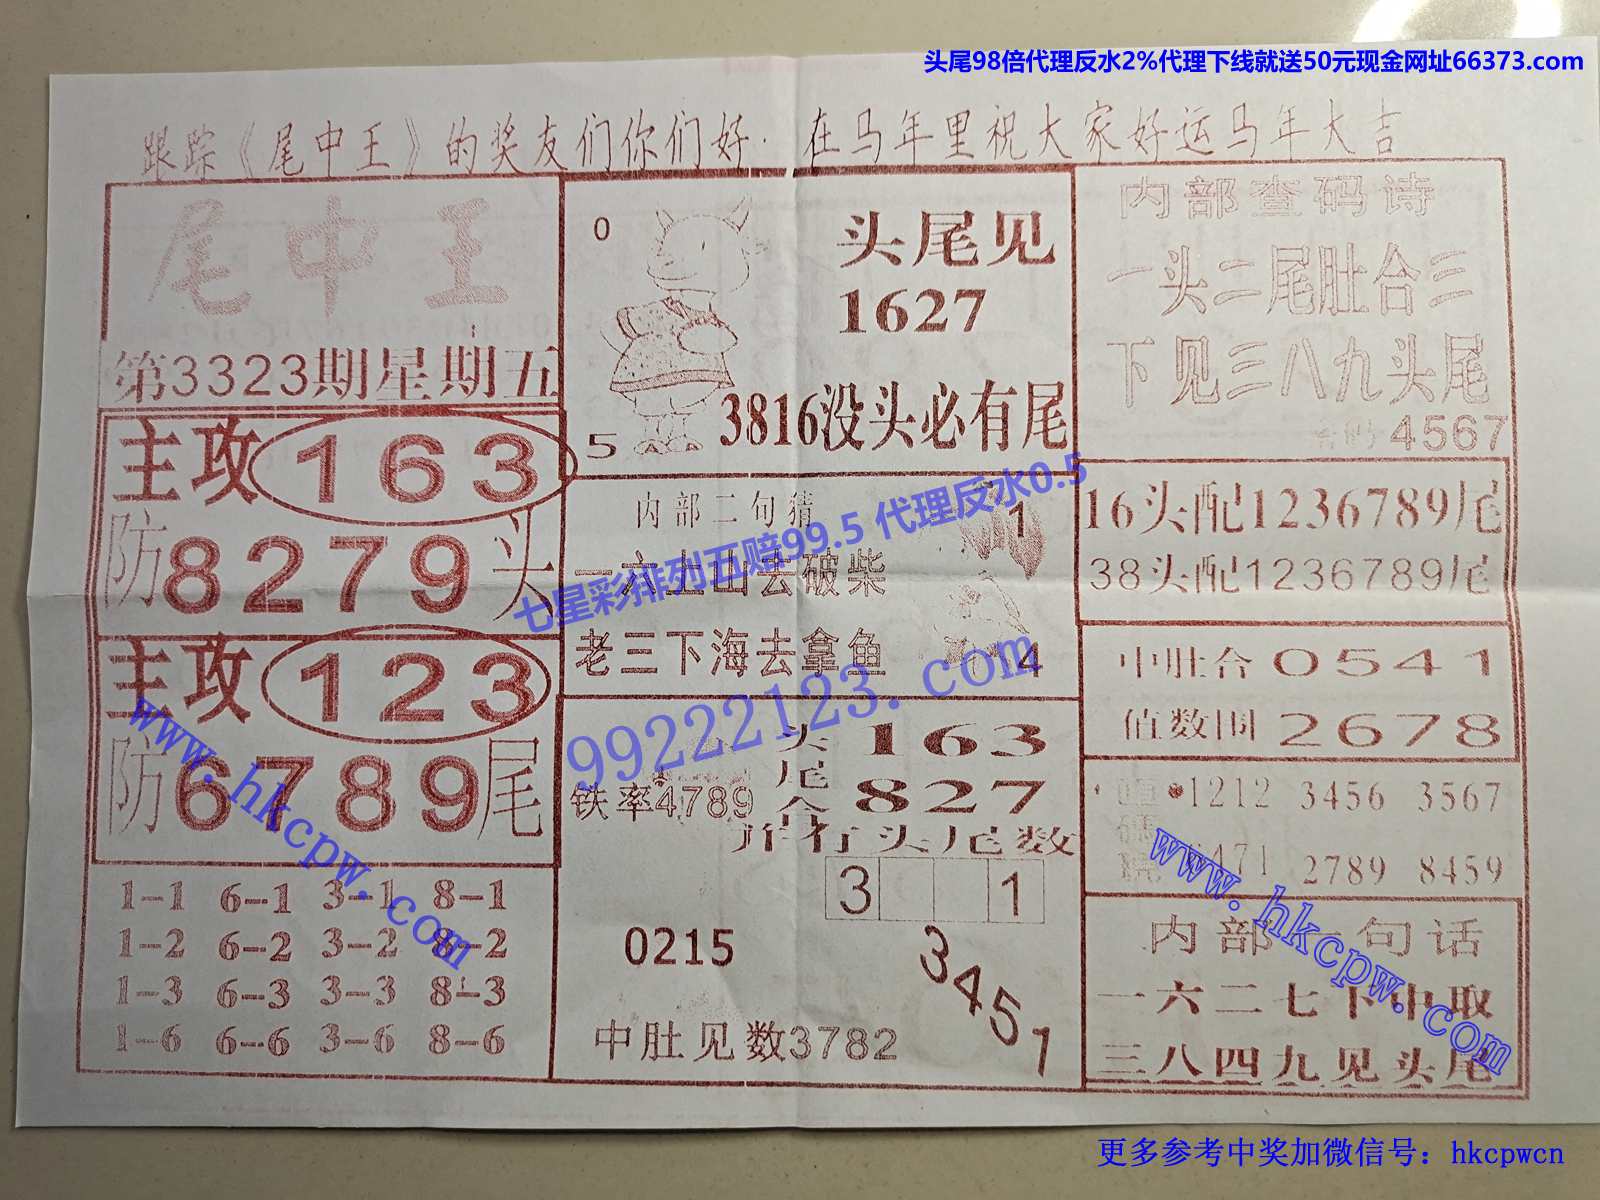 头尾98倍代理反水2%代理下线就送50元现金网址66373.com
跟踪《尾中王》的奖友们你们好.在马年里祝大家好运马年大吉
尾中王
第3323期星期五
主攻163
防8279头
主攻123
防6789尾
1-1 6-1 3-1 8-1
1-2 6-2 3-2 8-2
1-3 6-3 3-3 8-3
1-6 6-6 3-6 8-6
0
5
头尾见
1627
3816没头必有尾
内部二句猜
一六上山去破柴
老三下海去拿鱼
1
4
七星彩排列五赔99.5 代理反水0.5
99222123.com
头尾合
163
827
铁率4789
开行头尾数
3 1
0215
3451
中肚见数3782
内部查码诗
一头二尾肚合三
下见三八九头尾
4567
16头配1236789尾
38头配1236789尾
中肚合0541
值数围2678
1212 3456 3567
471 2789 8459
内部一句话
一六二七下中取
三八四九见头尾
www.hkcpw.com
www.hkcpw.com
更多参考中奖加微信号：hkcpwcn